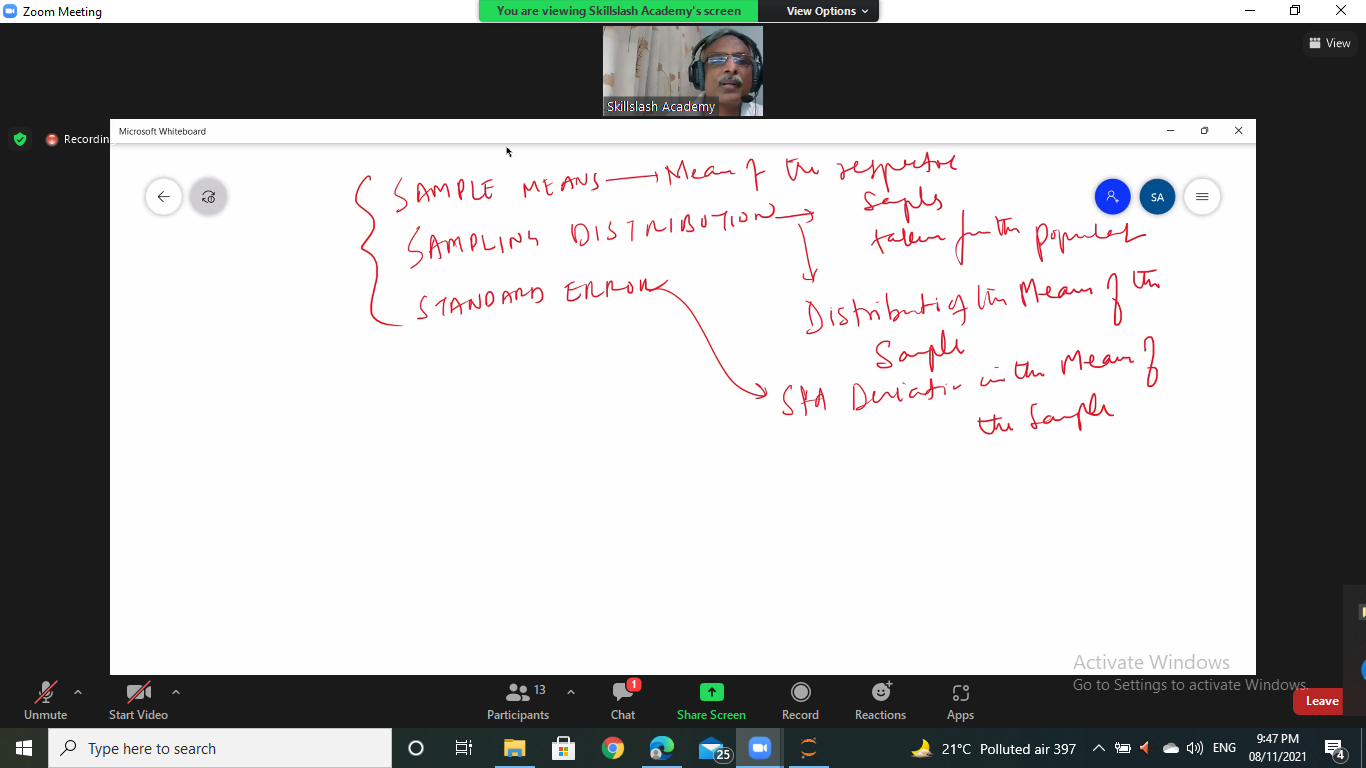 Zoom Meeting
You are viewing Skillslash Academy's screen
View Options
View
Skillslash Academy
Recording
Microsoft Whiteboard
SA
SAMPLE MEANS → Mean of the respective
Samples
taken from the populat
SAMPLING DISTRIBUTION →
Distributi of the Mean of the
Sample
STANDARD ERROR
Std Deviation in the Mean of
the Sample
Activate Windows
Go to Settings to activate Windows.
Unmute
Start Video
Participants
13
Chat
1
Share Screen
Record
Reactions
Apps
Leave
Type here to search
25
21°C Polluted air 397
ENG
9:47 PM
08/11/2021
4